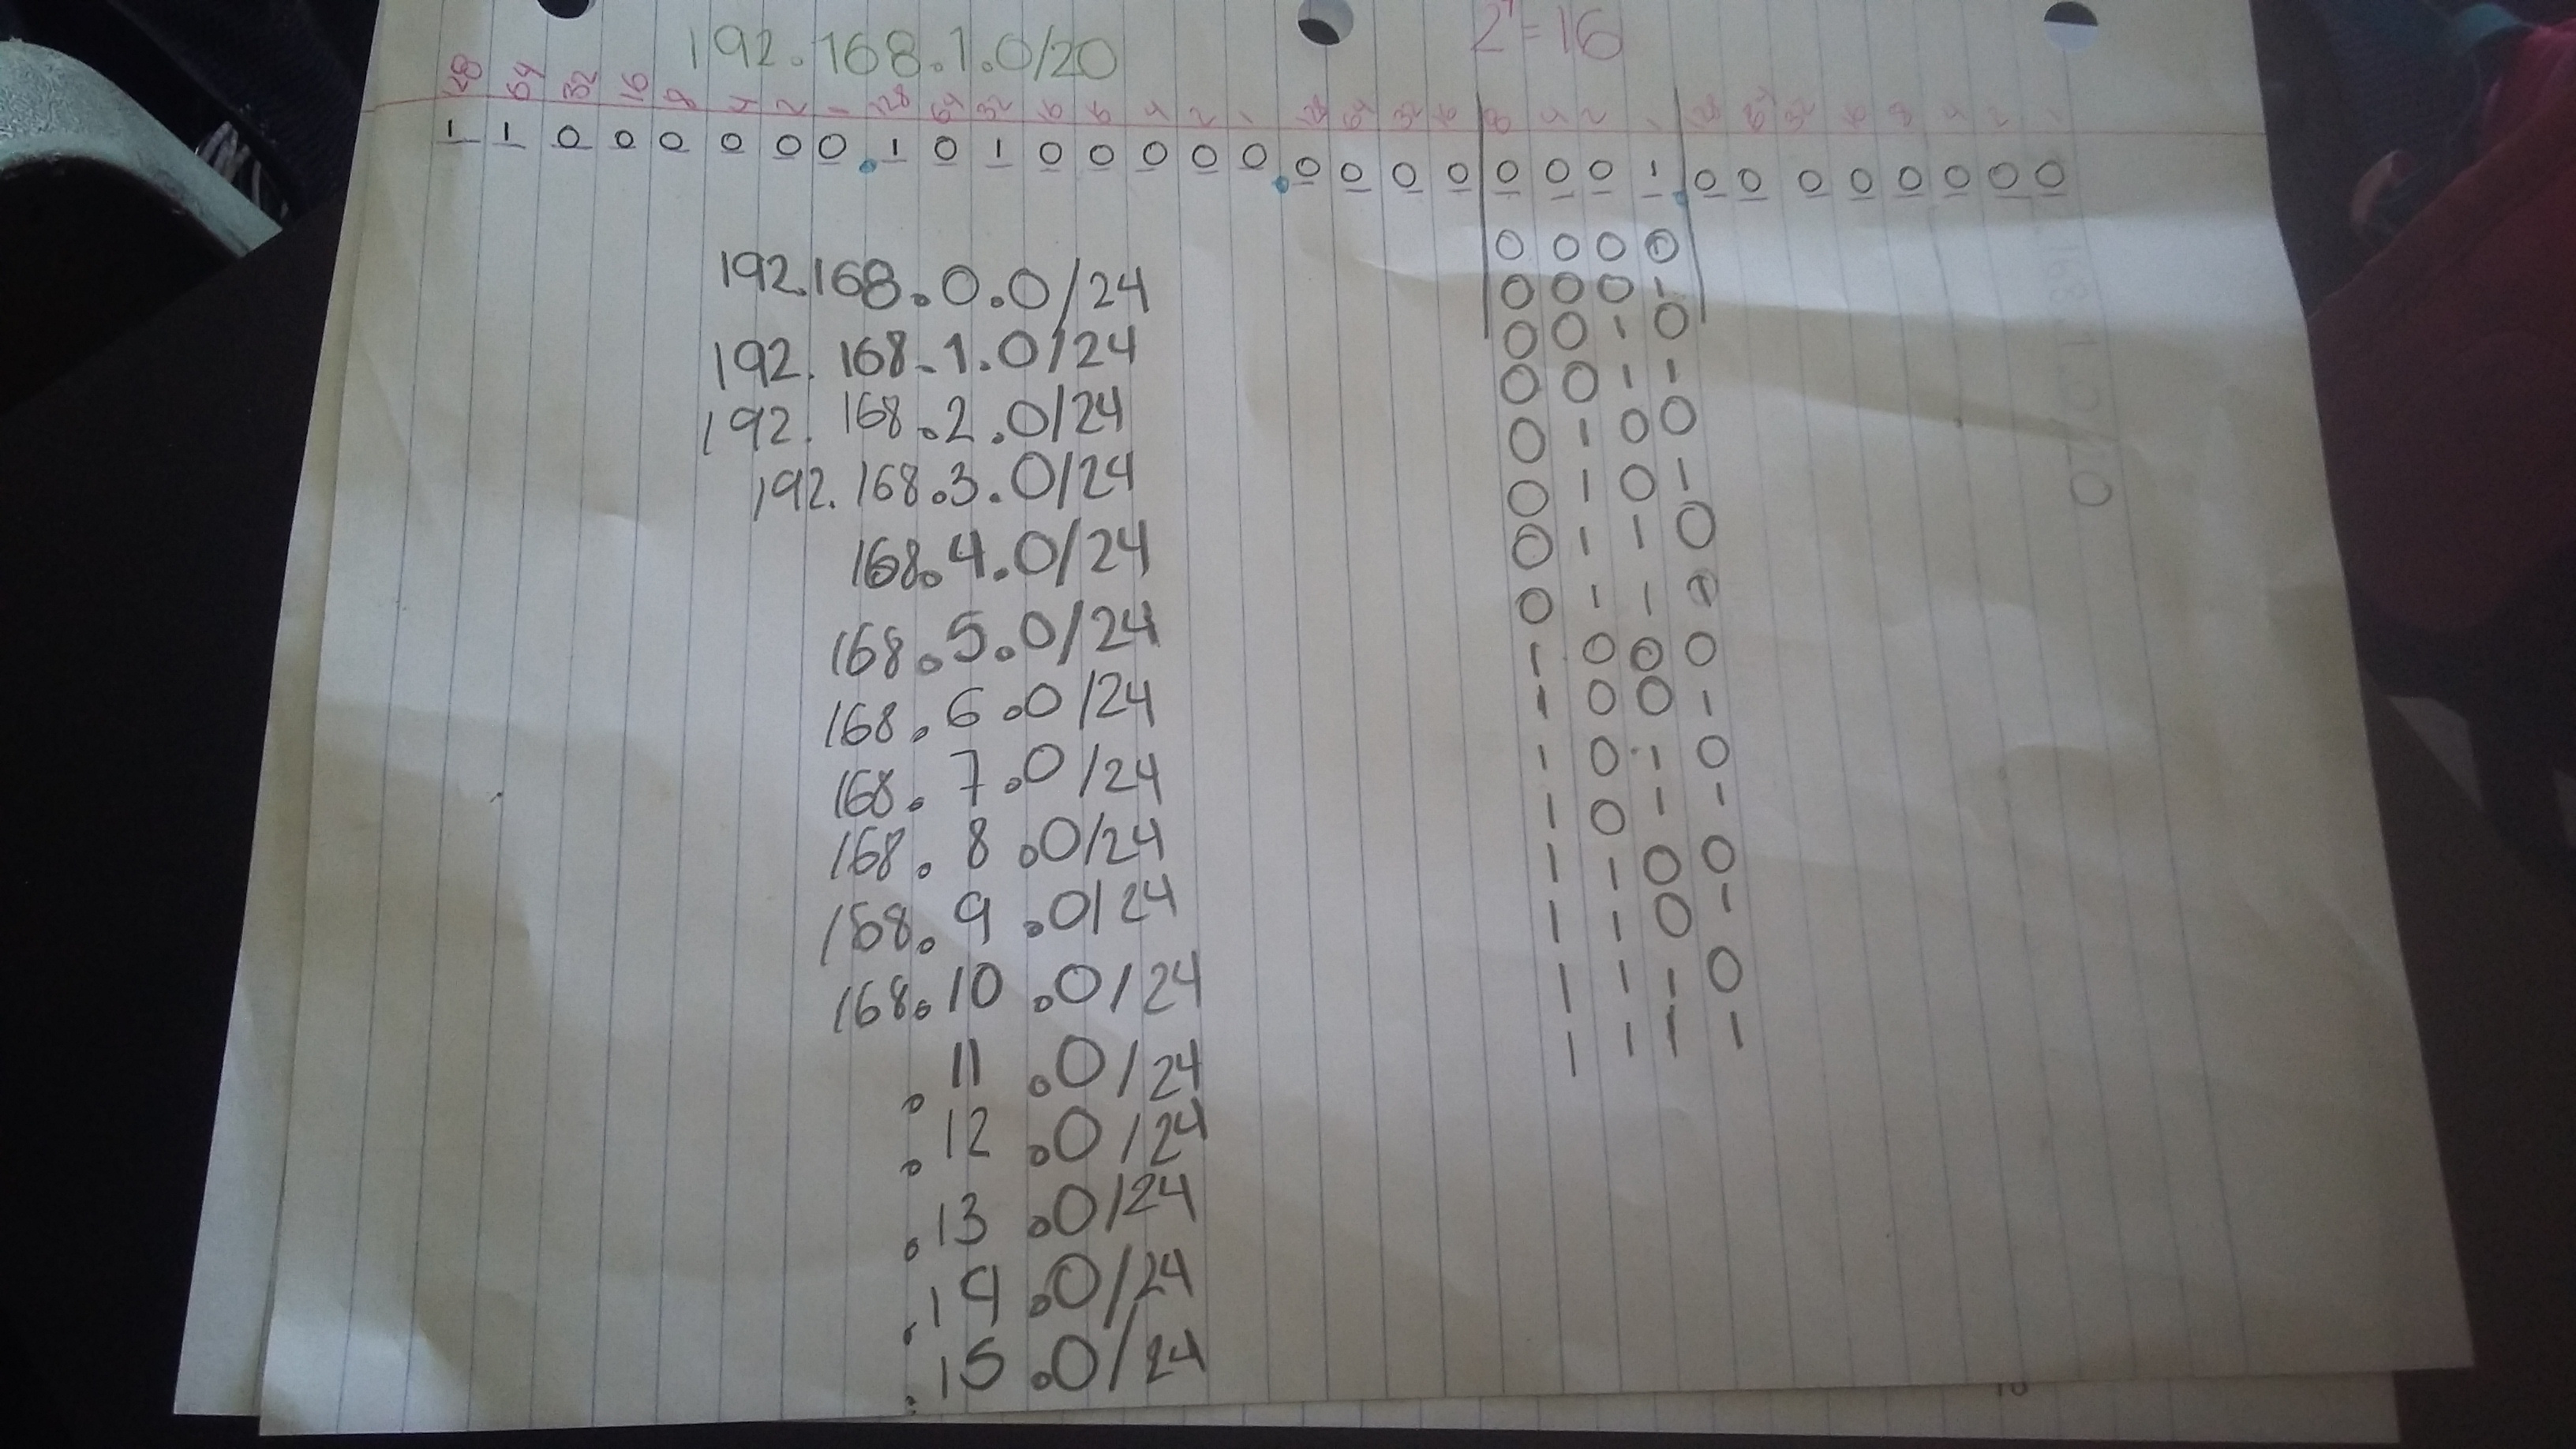 192.168.1.0/20
2⁴=16
128 64 32 16 8 4 2 1 128 64 32 16 8 4 2 1 128 64 32 16 8 4 2 1 128 64 32 16 8 4 2 1
1 1 0 0 0 0 0 0 . 1 0 1 0 0 0 0 0 . 0 0 0 0 0 0 0 1 . 0 0 0 0 0 0 0 0
192.168.0.0/24
192.168.1.0/24
192.168.2.0/24
192.168.3.0/24
168.4.0/24
168.5.0/24
168.6.0/24
168.7.0/24
168.8.0/24
168.9.0/24
168.10.0/24
.11.0/24
.12.0/24
.13.0/24
.14.0/24
.15.0/24
0 0 0 0
0 0 0 1
0 0 1 0
0 0 1 1
0 1 0 0
0 1 0 1
0 1 1 0
0 1 1 1
1 0 0 0
1 0 0 1
1 0 1 0
1 0 1 1
1 1 0 0
1 1 0 1
1 1 1 0
1 1 1 1